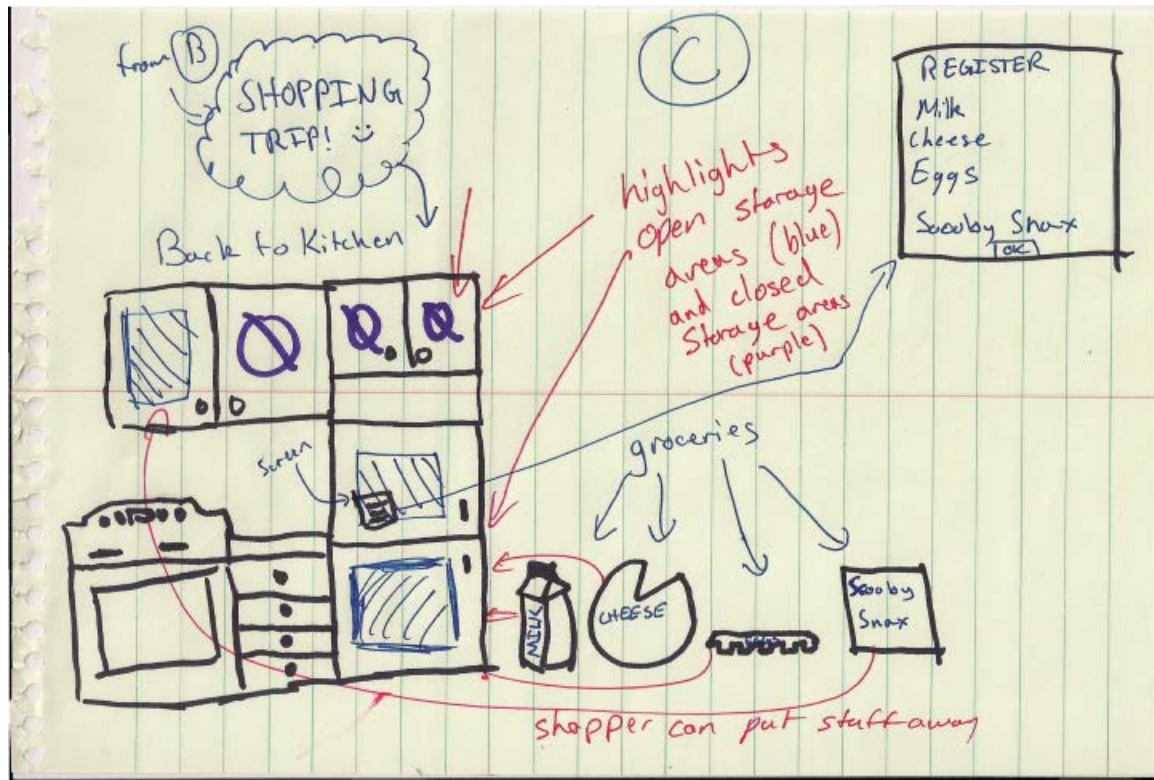 from B
SHOPPING
TRIP!
C
REGISTER
Milk
Cheese
Eggs
Scooby Snax
OK
Back to Kitchen
highlights
open storage
areas (blue)
and closed
storage areas
(purple)
screen
groceries
MILK
CHEESE
Scooby
Snax
shopper can put stuff away